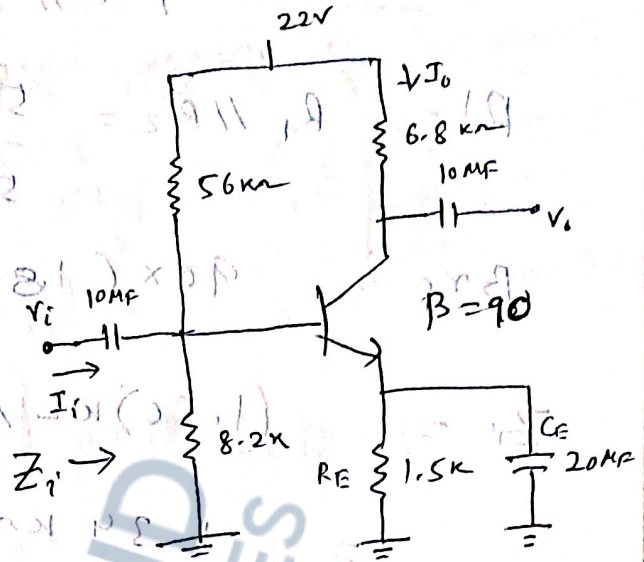 22V
↓I₀
6.8 KΩ
56KΩ
10MF
V₀
Vi
10MF
β=90
Ii
8.2K
Zi
RE
1.5K
CE
20MF